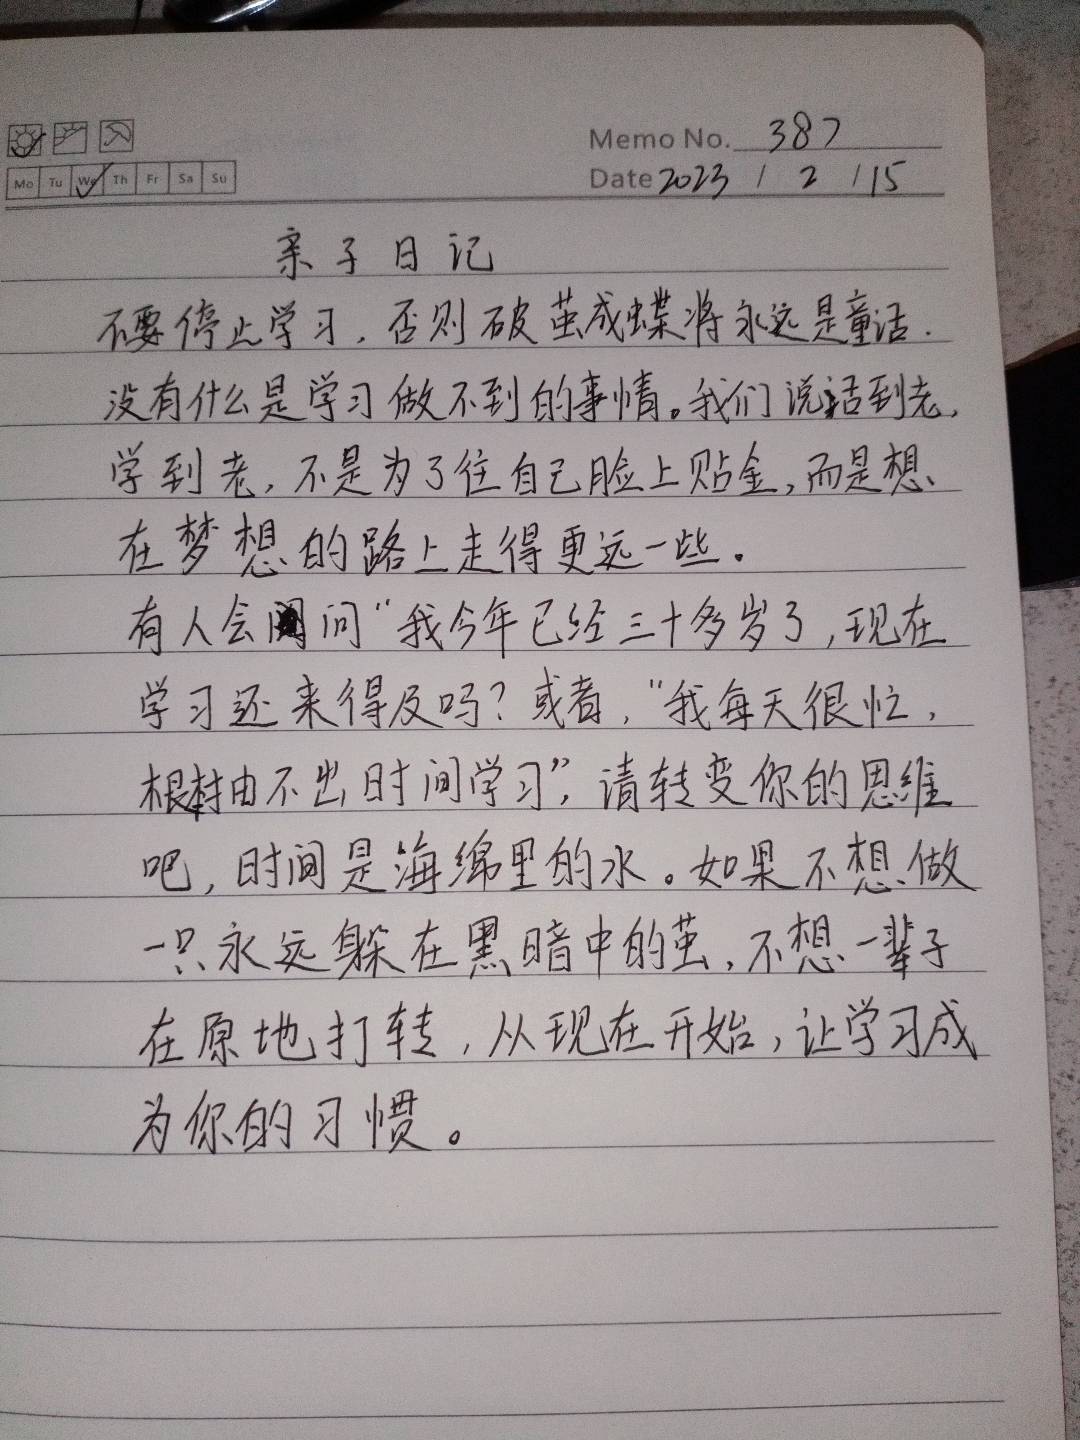 Memo No. 387
Mo Tu We Th Fr Sa Su
Date 2023 / 2 / 15
亲子日记
不要停止学习，否则破茧成蝶将永远是童话.
没有什么是学习做不到的事情。我们说话到老，
学到老，不是为了往自己脸上贴金，而是想
在梦想的路上走得更远一些。
有人会问“我今年已经三十多岁了，现在
学习还来得及吗？或者，“我每天很忙，
根抽不出时间学习”，请转变你的思维
吧，时间是海绵里的水。如果不想做
一只永远躲在黑暗中的茧，不想一辈子
在原地打转，从现在开始，让学习成
为你的习惯。